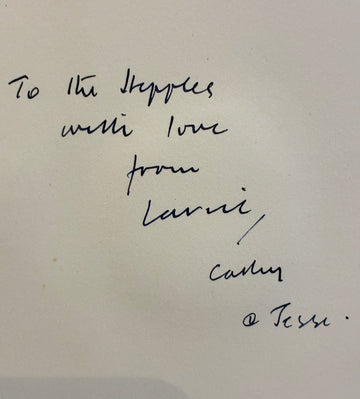 To the Hepples
with love
from
Laurie,
Cathy
& Jesse.